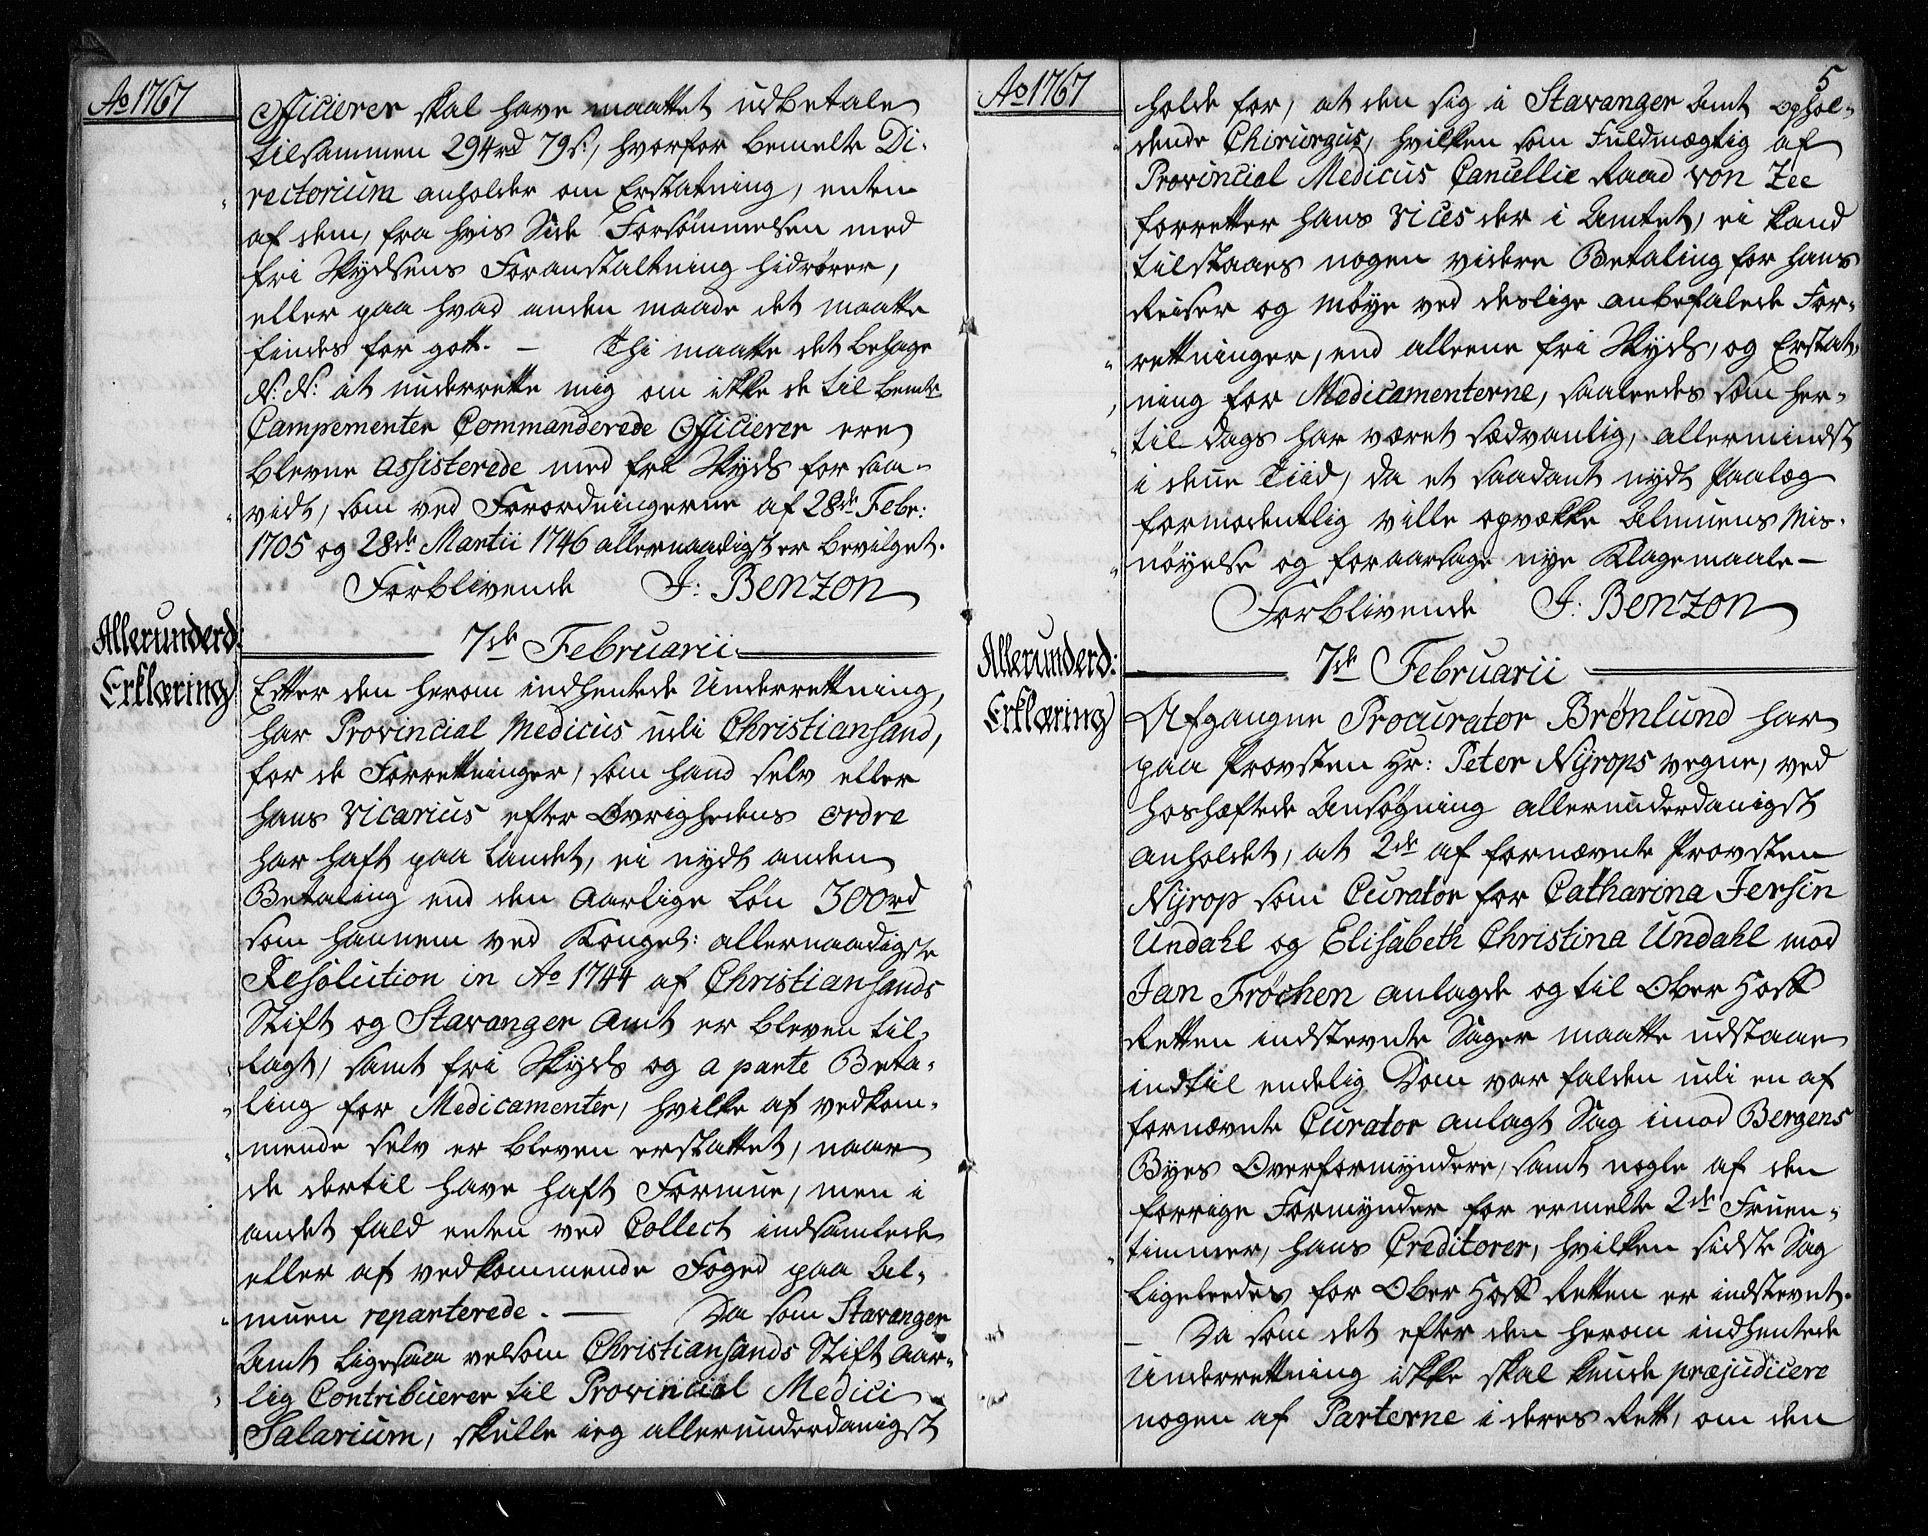 Ao 1767
Officierer skal have maattet udbetale
tilsammen 294rd 79s:, hvorfor bemelte Di-
rectorium anholder om Erstatning, enten
af dem, fra hvis Side Forsømmelsen med
fri Skydsens Foranstaltning hidrører,
eller paa hvad anden maade det maatte
findes for gott. — Thi maatte det behage
N: N: at underrette mig om ikke de til bemte
Campementer Commanderede Officierer ere
blevne assisterede med fri Skyds for saa-
vidt, som ved Forordningerne af 28de Febr:
1705 og 28de Martii 1746 allernaadigst er bevilget.
Forblivende J: Benzon
7de Februarii
Allerunderd:
Erklæring
Efter den herom indhentede Underrettning,
har Provincial Medicus udi Christiansand,
for de Forrettninger, som hand selv eller
hans vicarius efter Øvrighedens ordre
har haft paa Landet, ei nydt anden
Betaling end den aarlige Løn 300rd
som hannem ved Kongel: allernaadigste
Resolution in Ao 1744 af Christiansands
Stift og Stavanger Amt er bleven til-
lagt, samt fri Skyds og a parte Beta-
ling for Medicamenter, hvilke af vedkom-
mende selv er bleven erstattet, naar
de dertil have haft Formue, men i
andet fald enten ved Collect indsamlede
eller af vedkommende Foged paa Al-
muen reparterede. — Da som Stavanger
Amt ligesaa velsom Christiansands Stift aar-
lig Contribuerer til Provincial Medici
Salarium, skulle ieg allerunderdanigst
Ao 1767
5
holde for, at den sig i Stavanger Amt ophol-
dende Chirurgus, hvilken som Fuldmægtig af
Provincial Medicus Cancellie Raad von Zee
forretter hans vices der i Amtet, ei kand
tilstaaes nogen videre Betaling for hans
Reiser og Møye ved deslige anbefalede For-
rettninger, end alleene fri Skyds, og Erstat-
ning for Medicamenterne, saaleedes som her-
til dags har været sædvanlig, allermindst
i denne Tiid, da et saadant nydt Paalæg
formodentlig ville opvække Almuens Mis-
nøyelse og foraarsage nye Klagemaale —
Forblivende J: Benzon
7de Februarii
Allerunderd:
Erklæring
Afgangne Procurator Brønlund har
paa Provsten Hr: Peter Nyrops vegne, ved
hoshæftede Ansøgning allerunderdanigst
anholdet, at 2de af fornævnte Provsten
Nyrop som Curator for Catharina Jersin
Undahl og Elisabeth Christina Undahl mod
Jan Frøchen anlagde og til Ober Hoff
Retten indstevnte Sager maatte udstaae
indtil endelig Dom var falden udi en af
fornævnte Curator anlagt Sag imod Bergens
Byes Overformyndere, samt nogle af den
forrige Formynder for ermelte 2de Fruen-
timmer, hans Creditorer, hvilken sidste Sag
ligeleedes for Ober Hoff Retten er indstevnt.
— Da som det efter den herom indhentede
Underrettning ikke skal kunde præjudicere
nogen af Parterne i deres Rett, om den